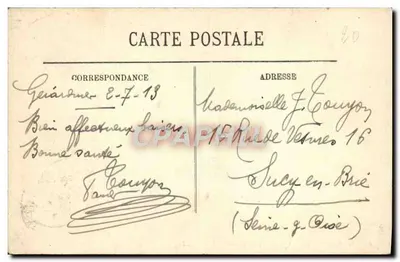 20
CARTE POSTALE
CORRESPONDANCE
Gérardmer 2-7-13
Bien affectueux baisers
Bonne santé
Touyon
ADRESSE
Mademoiselle J. Touyon
16 Rue de Vesmes 16
Sucy-en-Brie
(Seine-&-Oise)
CPAPHIL